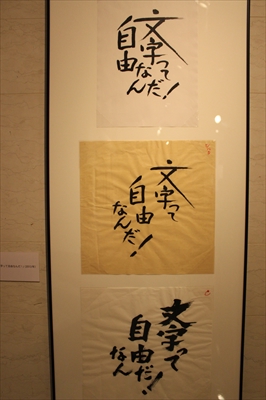 文字って
自由
なんだ!
文字って
自由
なんだ!
文字って
自由
なんだ!